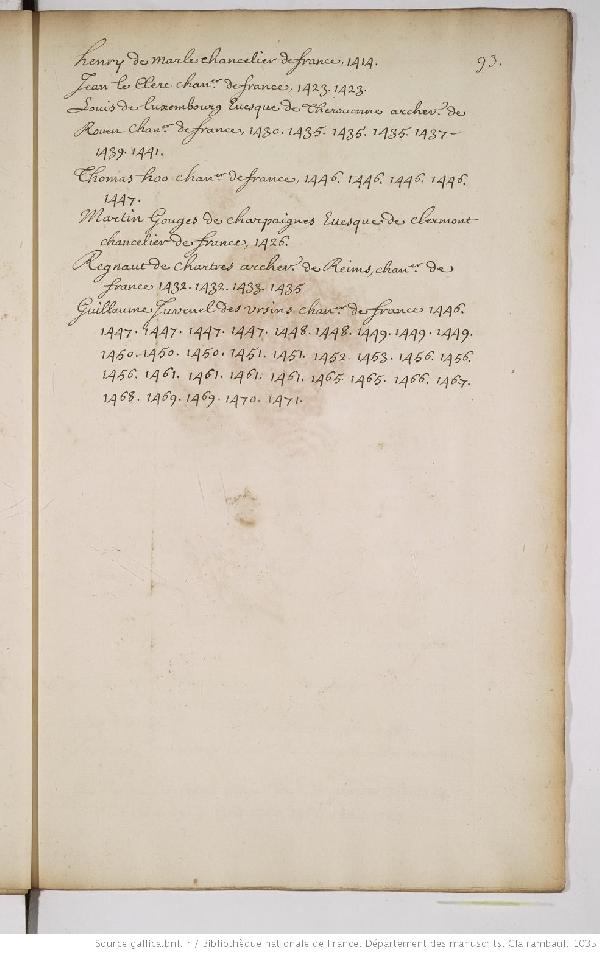 93.
henry de Marle chancelier de france, 1414.
Jean le Clerc chaner. de france, 1423. 1423.
Louis de luxembourg Euesque de Therouenne archev.e de
Rouen chaner. de france, 1430. 1435. 1435. 1435. 1437-
1439. 1441.
Thomas hoo chaner. de france, 1446. 1446. 1446. 1446.
1447.
Martin Gouges de charpaignes Euesque de clermont
chancelier de france, 1426.
Regnaut de chartres archev.e de Reims, chaner. de
france 1432. 1432. 1433. 1435
Guillaume Juvenel des ursins chaner. de france 1446.
1447. 1447. 1447. 1447. 1448. 1448. 1449. 1449. 1449.
1450. 1450. 1450. 1451. 1451. 1452. 1453. 1456. 1456.
1456. 1461. 1461. 1461. 1461. 1465. 1465. 1466. 1467.
1468. 1469. 1469. 1470. 1471.
Source gallica.bnf.fr / Bibliothèque nationale de France. Département des manuscrits. Clairambault 1035